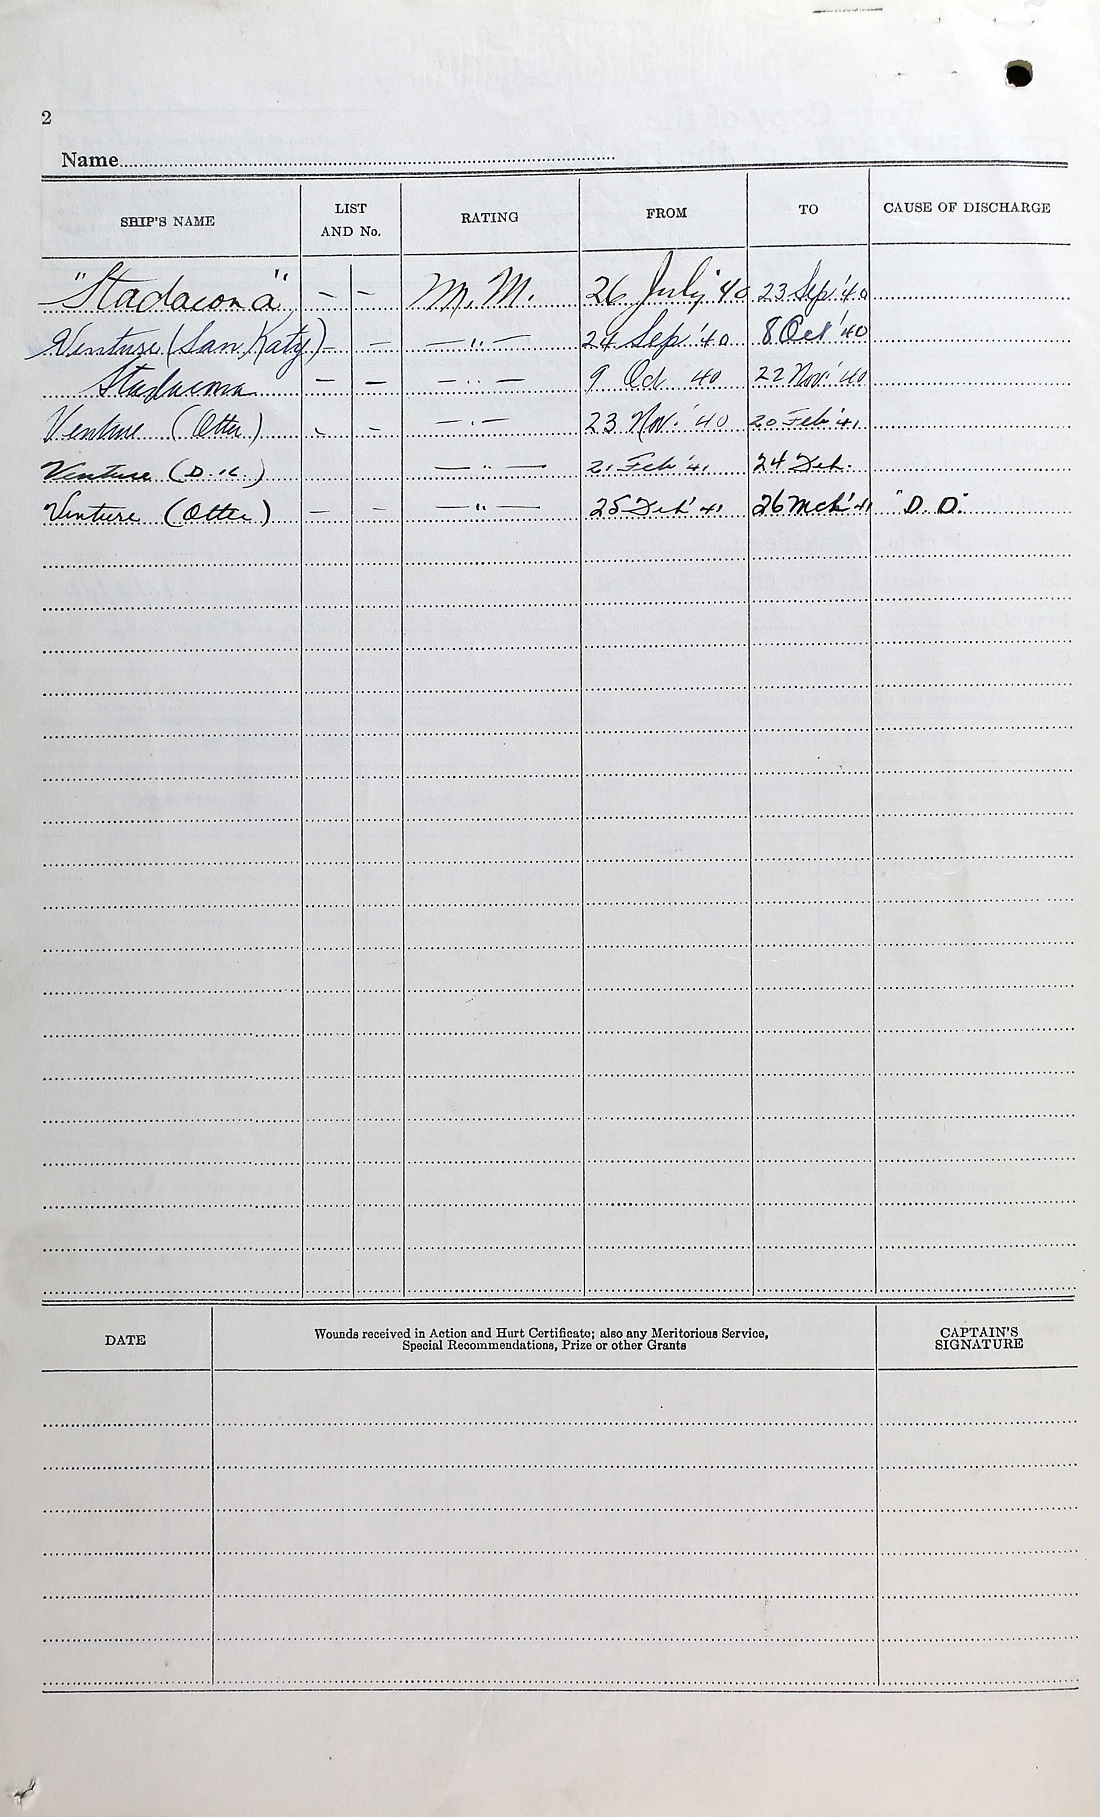 2
Name
SHIP'S NAME LIST AND No. RATING FROM TO CAUSE OF DISCHARGE
"Stadacona" — — M. M. 26 July '40 23 Sep '40
Venture (San Katy) — — — " — 24 Sep '40 8 Oct '40
Stadacona — — — " — 9 Oct 40 22 Nov. '40
Venture (Otter) - — — " — 23 Nov. '40 20 Feb '41
Venture — " — 21 Feb '41 24 Feb.
Venture (Otter) — — — " — 25 Feb '41 26 Mch '41 "D. D."
DATE Wounds received in Action and Hurt Certificate; also any Meritorious Service, CAPTAIN'S
Special Recommendations, Prize or other Grants SIGNATURE